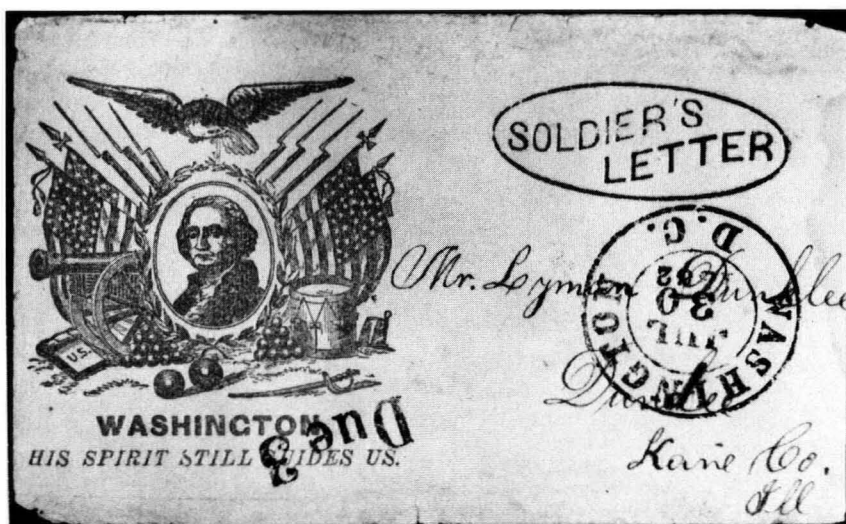 SOLDIER'S
LETTER
WASHINGTON D.C.
JUL
30
62
Mr. Lyman Dunklee
Dundee
Kane Co.
Ill
U.S.
WASHINGTON
HIS SPIRIT STILL GUIDES US.
Due 3